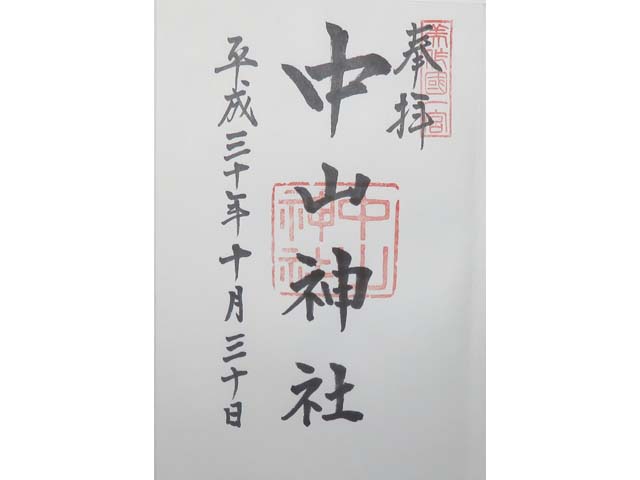 美作國一宮
奉拝
中山神社
中山神社
平成三十年十月三十日